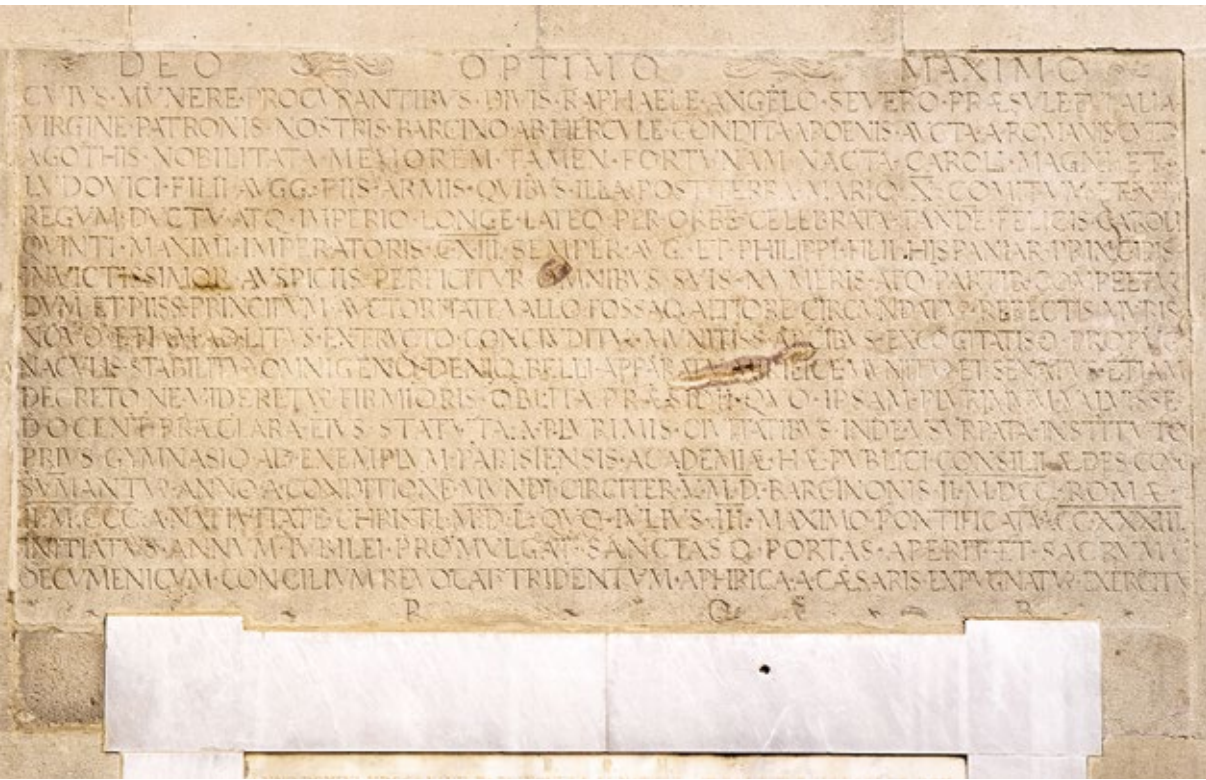 DEO OPTIMO MAXIMO
CVIVS·MVNERE·PROCVRANTIBVS·DIVIS·RAPHAELE·ANGELO·SEVERO·PRÆSVLE
VIRGINE·PATRONIS·NOSTRIS·BARCINO·AB·HERCVLE·CONDITA·APOENIS·AVCTA·A·ROMANIS
AGOTHIS·NOBILITATA·MEMOREM·TAMEN·FORTVNAM·NACTA·CAROLI·MAGNI·ET·
LVDOVICI·FILII·AVGG·PIIS·ARMIS·QVIBVS·ILLA·POST COMITVM
REGVM·DVCTV·ATQ·IMPERIO·LONGE·LATEQ·PER·ORBE·CELEBRATA·TANDE·FELICIS·CAROLI
QVINTI·MAXIMI·IMPERATORIS·CXIII·SEMPER·AVG·ET·PHILIPPI·FILII·HISPANIAR·PRINCIPIS
INVICTISSIMOR·AVSPICIIS·PERFICITVR SVIS·NVMERIS·ATQ·PARTIB
DVM·ET·PIISS·PRINCIPVM·AVCTORITATE·VALLO·FOSSAQ·ALTIORE·CIRCVNDATVR·REFECTIS·MVRIS
NOVO·ETIAM EXTRVCTO·CONCLVDITVR·MVNITISS EXCOGITATISQ·PROPVG
NACVLIS·STABILITVR·OMNIGENOQ·DENIQ·BELLI ETIAM
DECRETO·NE·VIDERETVR·FIRMIORIS·OBLITA·PRÆSIDII·QVO·IPSAM·PLVRIMVM·VALVISSE
DOCENT·PRÆCLARA·EIVS·STATVTA·A·PLVRIMIS·CIVITATIBVS·INDE·VSVRPATA·INSTITVTO
PRIVS·GYMNASIO·AD·EXEMPLVM·PARISIENSIS·ACADEMIÆ·HÆ·PVBLICI·CONSILII·ÆDES·CON
SVMANTVR·ANNO·A·CONDITIONE·MVNDI·CIRCITER·V·M·D·BARCINONIS·II·M·DCC·ROMÆ·
II·M·CCC·A·NATIVITATE·CHRISTI·M·D·L·QVO·IVLIVS·III·MAXIMO·PONTIFICATV·CCXXXIII
INITIATVS·ANNVM·IVBILEI·PROMVLGAT·SANCTASQ·PORTAS·APERIT·ET·SACRVM·
OECVMENICVM·CONCILIVM·REVOCAT·TRIDENTVM·APHRICA·A·CÆSARIS·EXPVGNATVR·EXERCITV